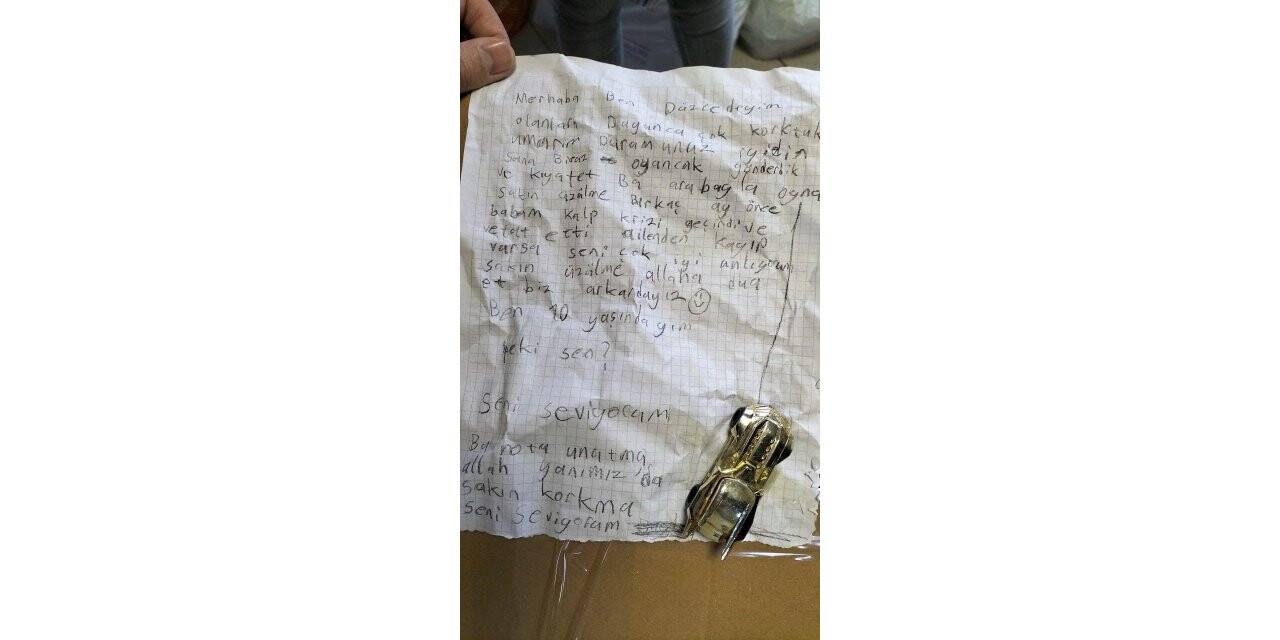 Merhaba Ben Düzcedeyim
olanları Duyunca çok korktuk
umarım Durumunuz iyidir
sana Biraz oyancak gönderdik
ve kıyafet Bu arabayla oyna
sakın üzülme Birkaç ay önce
babam kalp krizi geçirdi ve
vefat etti ailenden kayıp
varsa seni çok iyi anlıyorum
sakın üzülme allaha dua
et biz arkandayız
Ben 10 yaşındayım
peki sen?
Seni seviyorum
Bu notu unutma
allah yanımızda
sakın korkma
seni seviyorum